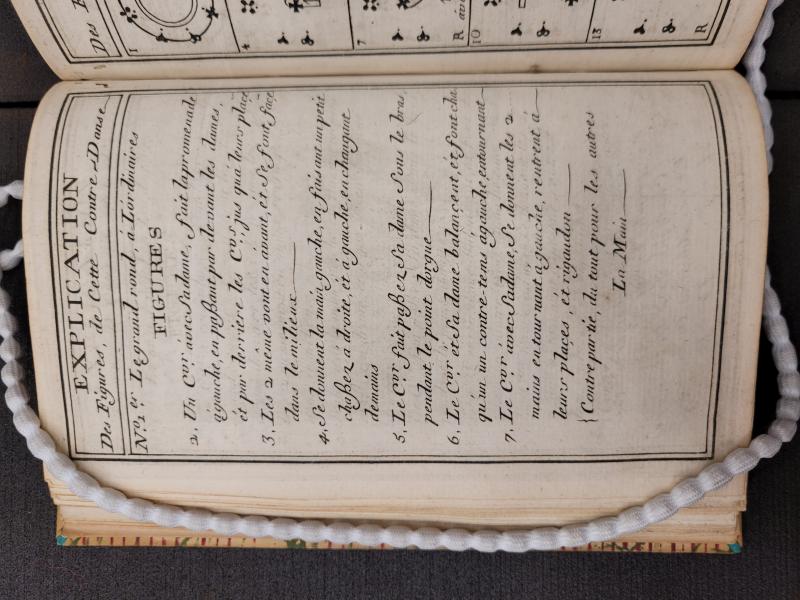 EXPLICATION
Des Figures, de Cette Contre-Danse
N.º 1.er Le grand rond, á L'ordinaires
FIGURES
2, Un Cvr avec Sa dame, fait la promenade
a gauche, en paßant par devant les dames,
et par derriere les Cvrs, jus qu'á leurs place
3, Les 2 même vont en avant, et Se font face
dans le milieux
4, Se donnent la main gauche, en faisant un petit
chaßez á droite, et á gauche, en changant
demains
5, Le Cvr fait paßez Sa dame Sous le bras,
pendant le point dorgue
6, Le Cvr et Sa dame balancent, et font cha
qu'un un contre-tems á gauche entournant
7, Le Cvr avec Sa dame, Se donnent les 2
mains en tournant á gauche, rentrent á
leurs places, et rigaudon
Contre partie, du tout pour les autres
La Main
Des
1
4
7
R
10
13
R